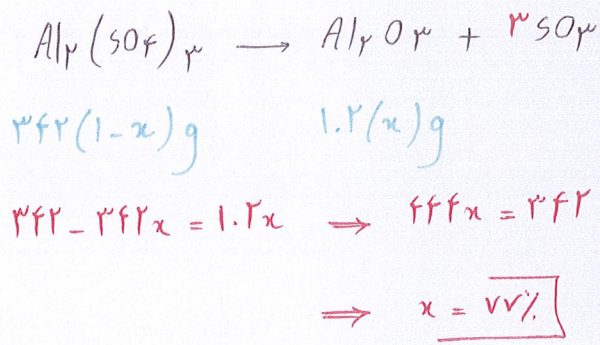 Al₂(SO۴)۳ → Al۲O۳ + ۳SO۳
۳۴۲(۱-x)g ۱۰۲(x)g
۳۴۲-۳۴۲x = ۱۰۲x ⇒ ۴۴۴x = ۳۴۲
⇒ x = ۷۷٪